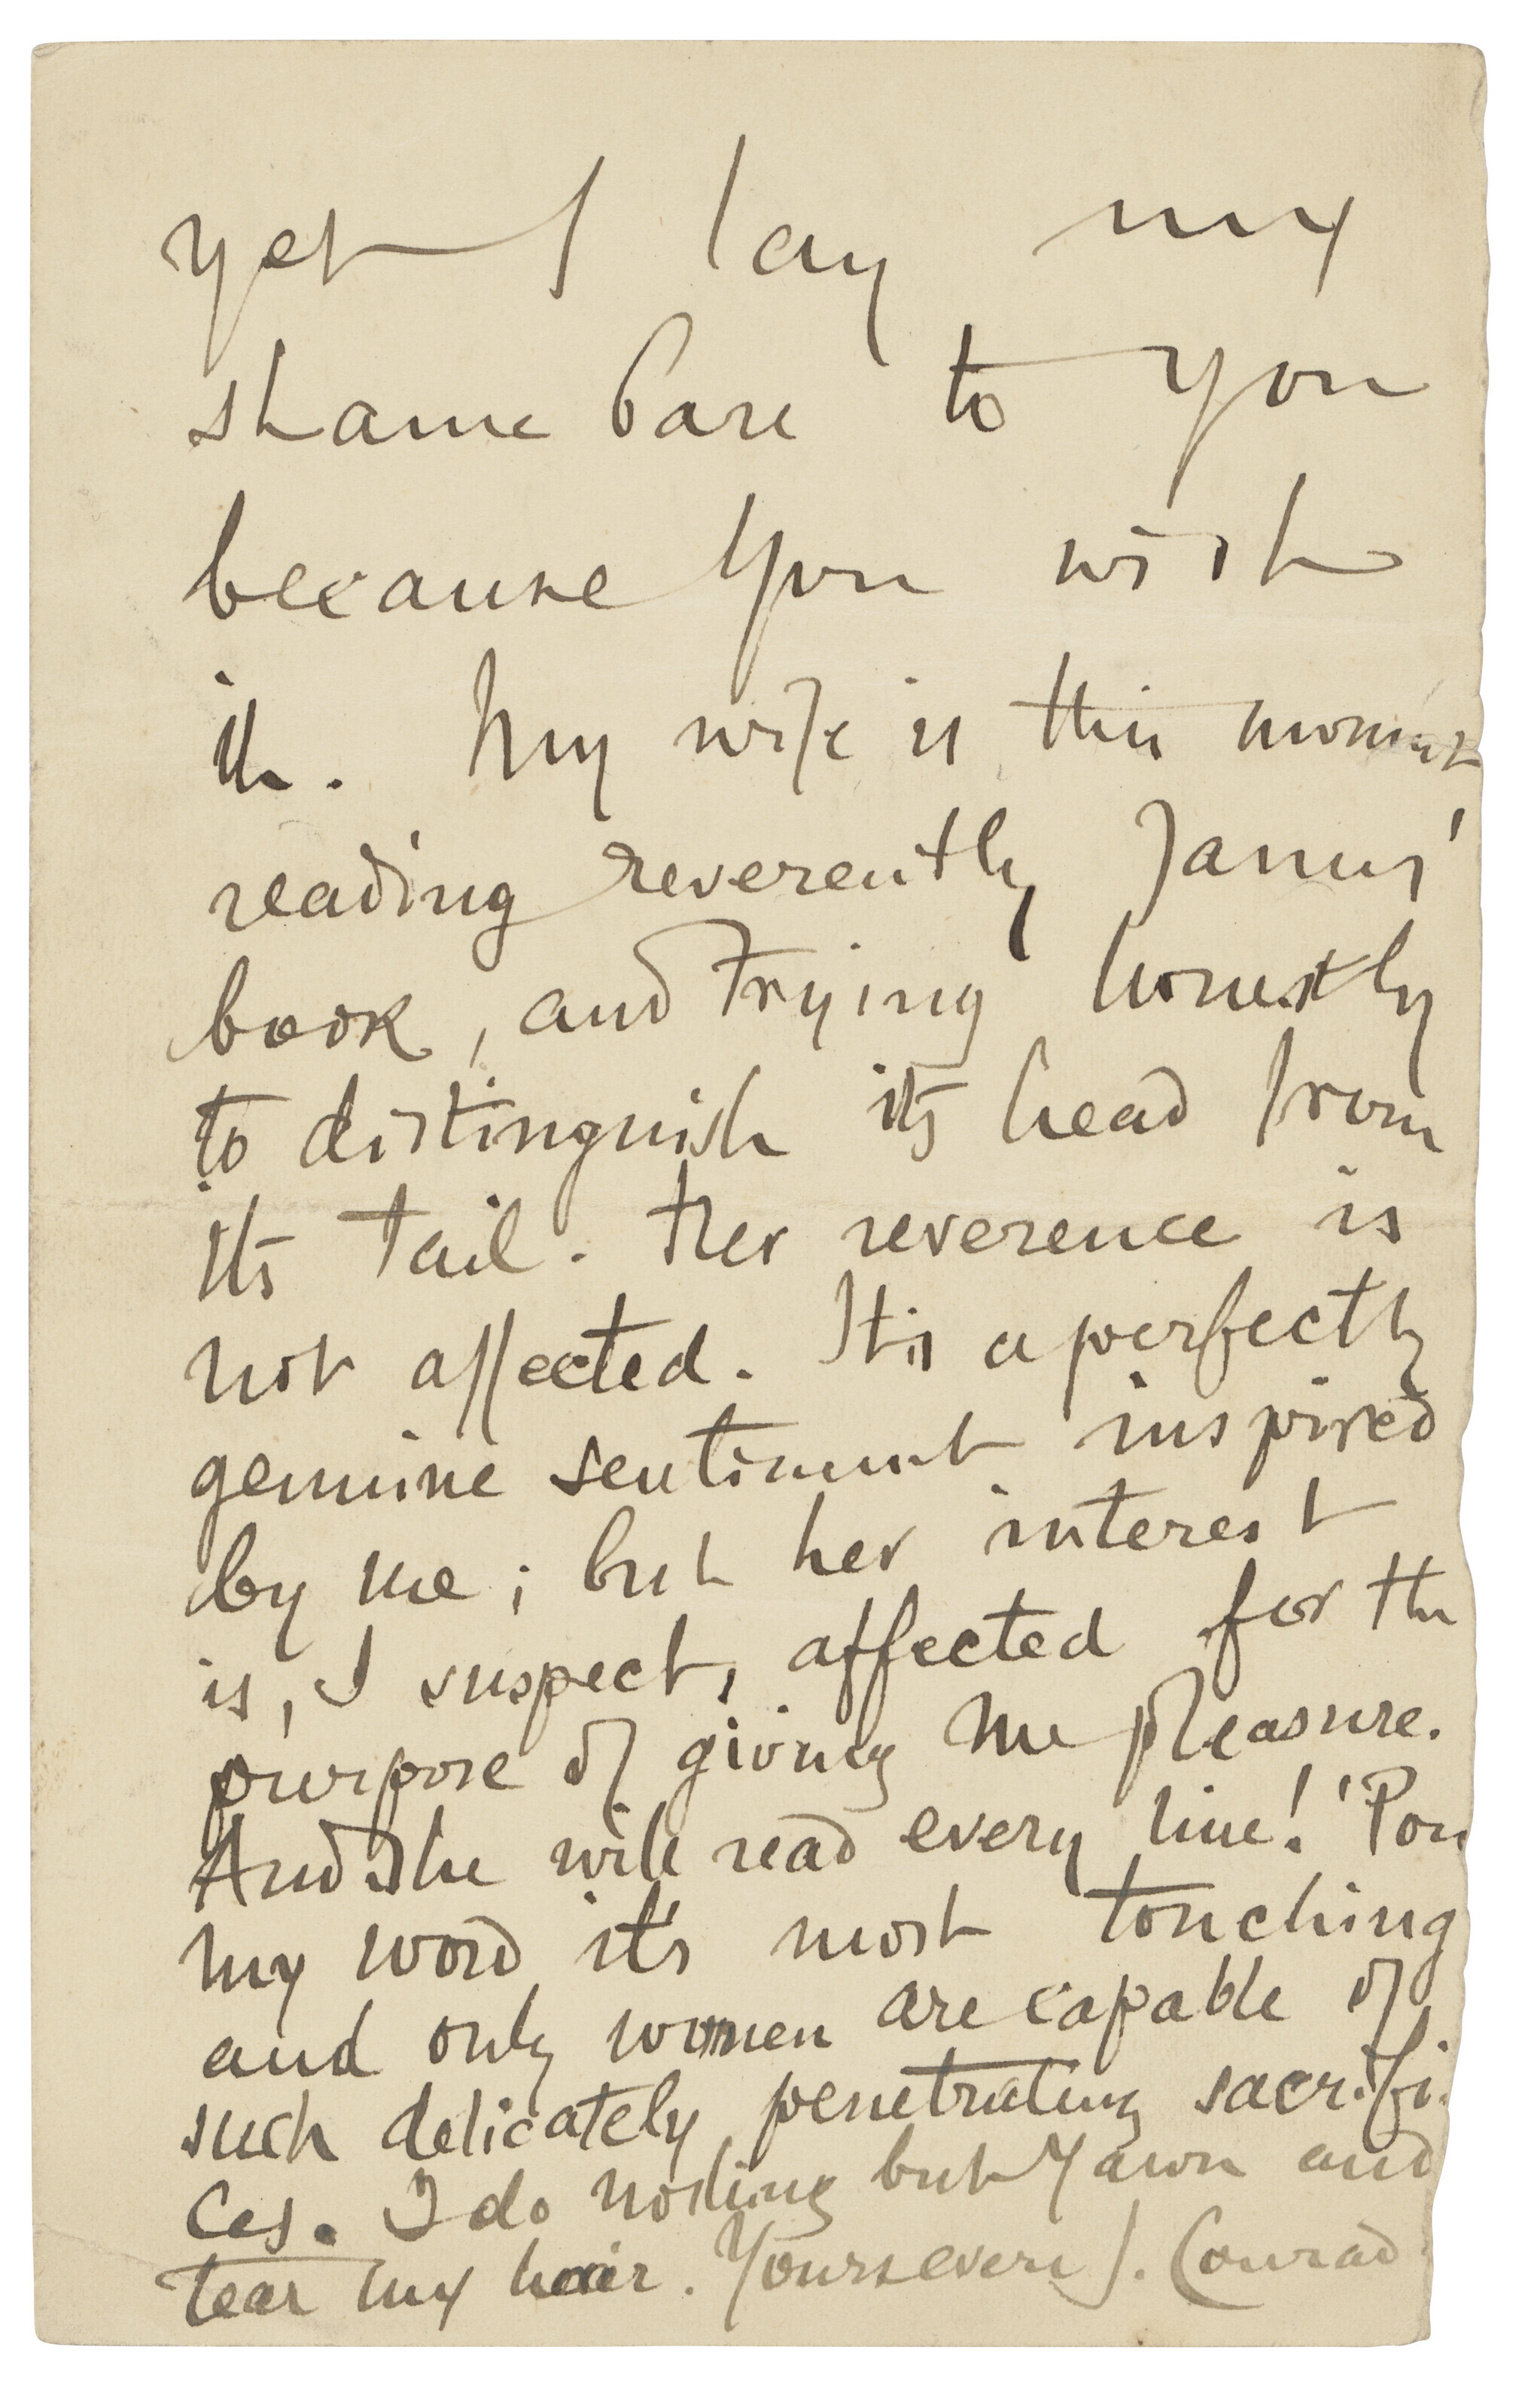 yet I lay my
shame bare to you
because you wish
it. My wife is this moment
reading reverently James'
book, and trying honestly
to distinguish its head from
its tail. Her reverence is
not affected. It is a perfectly
genuine sentiment inspired
by me; but her interest
is, I suspect, affected for the
purpose of giving me pleasure.
And she will read every line! 'Pon
my word it's most touching
and only women are capable of
such delicately penetrating sacrifi-
ces. I do nothing but yawn and
tear my hair. Yours ever J. Conrad